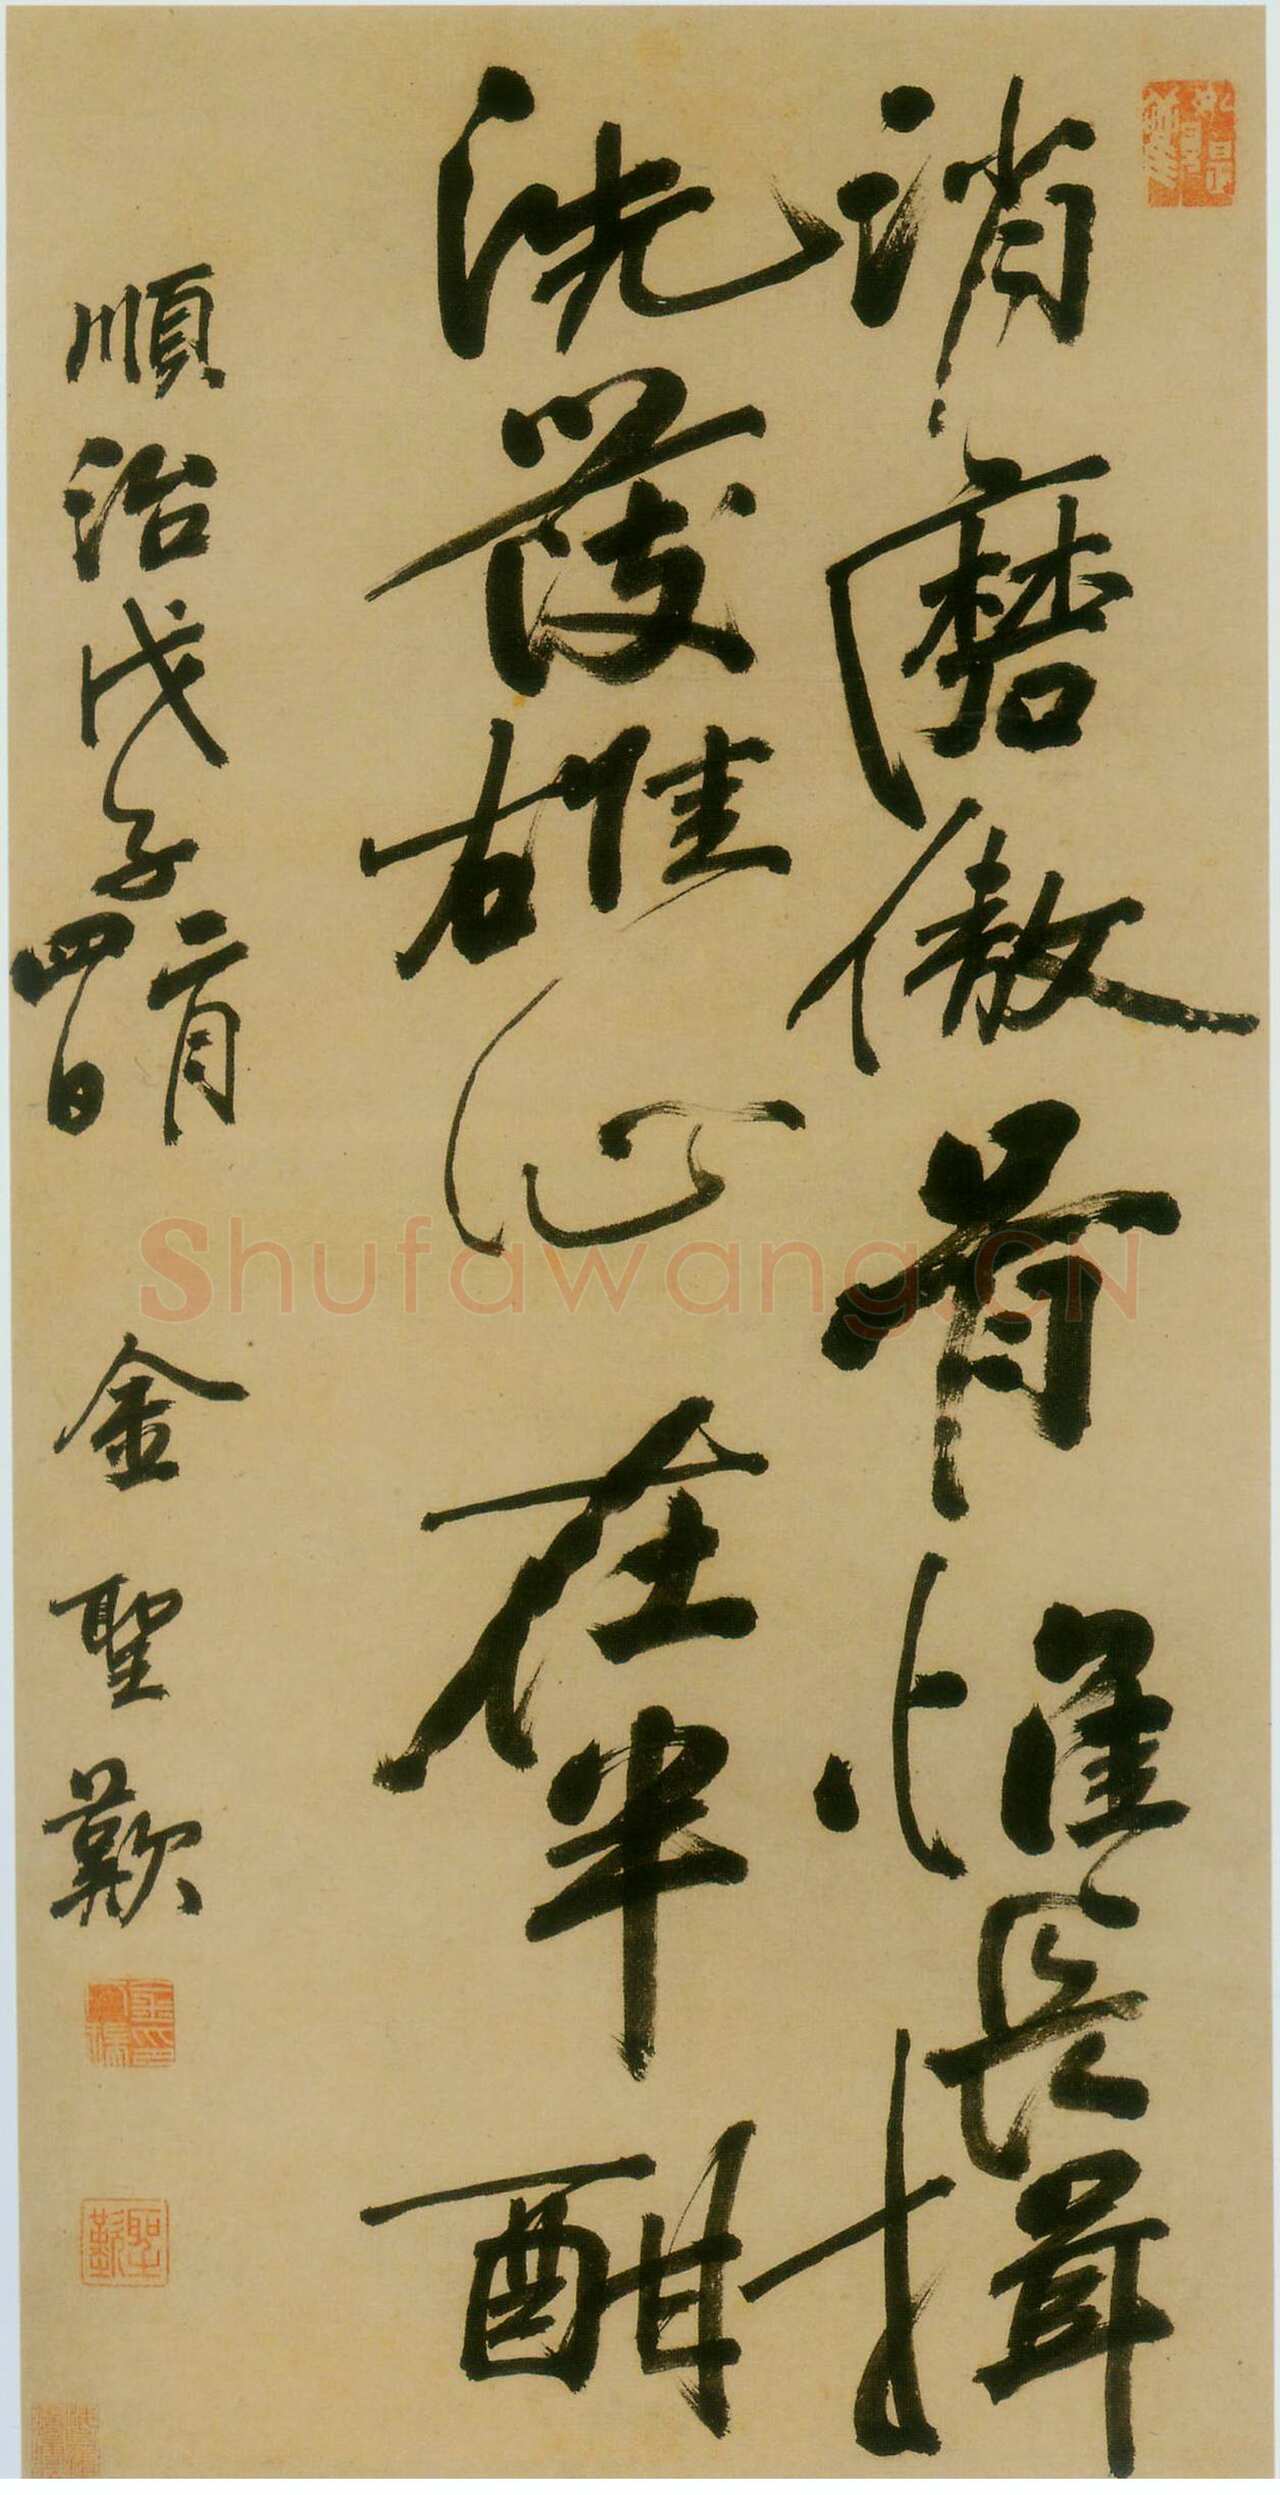 消磨傲骨惟長揖
洗發雄心在半酣
順治戊子二月四日 金聖歎
聖歎
Shufawang.CN